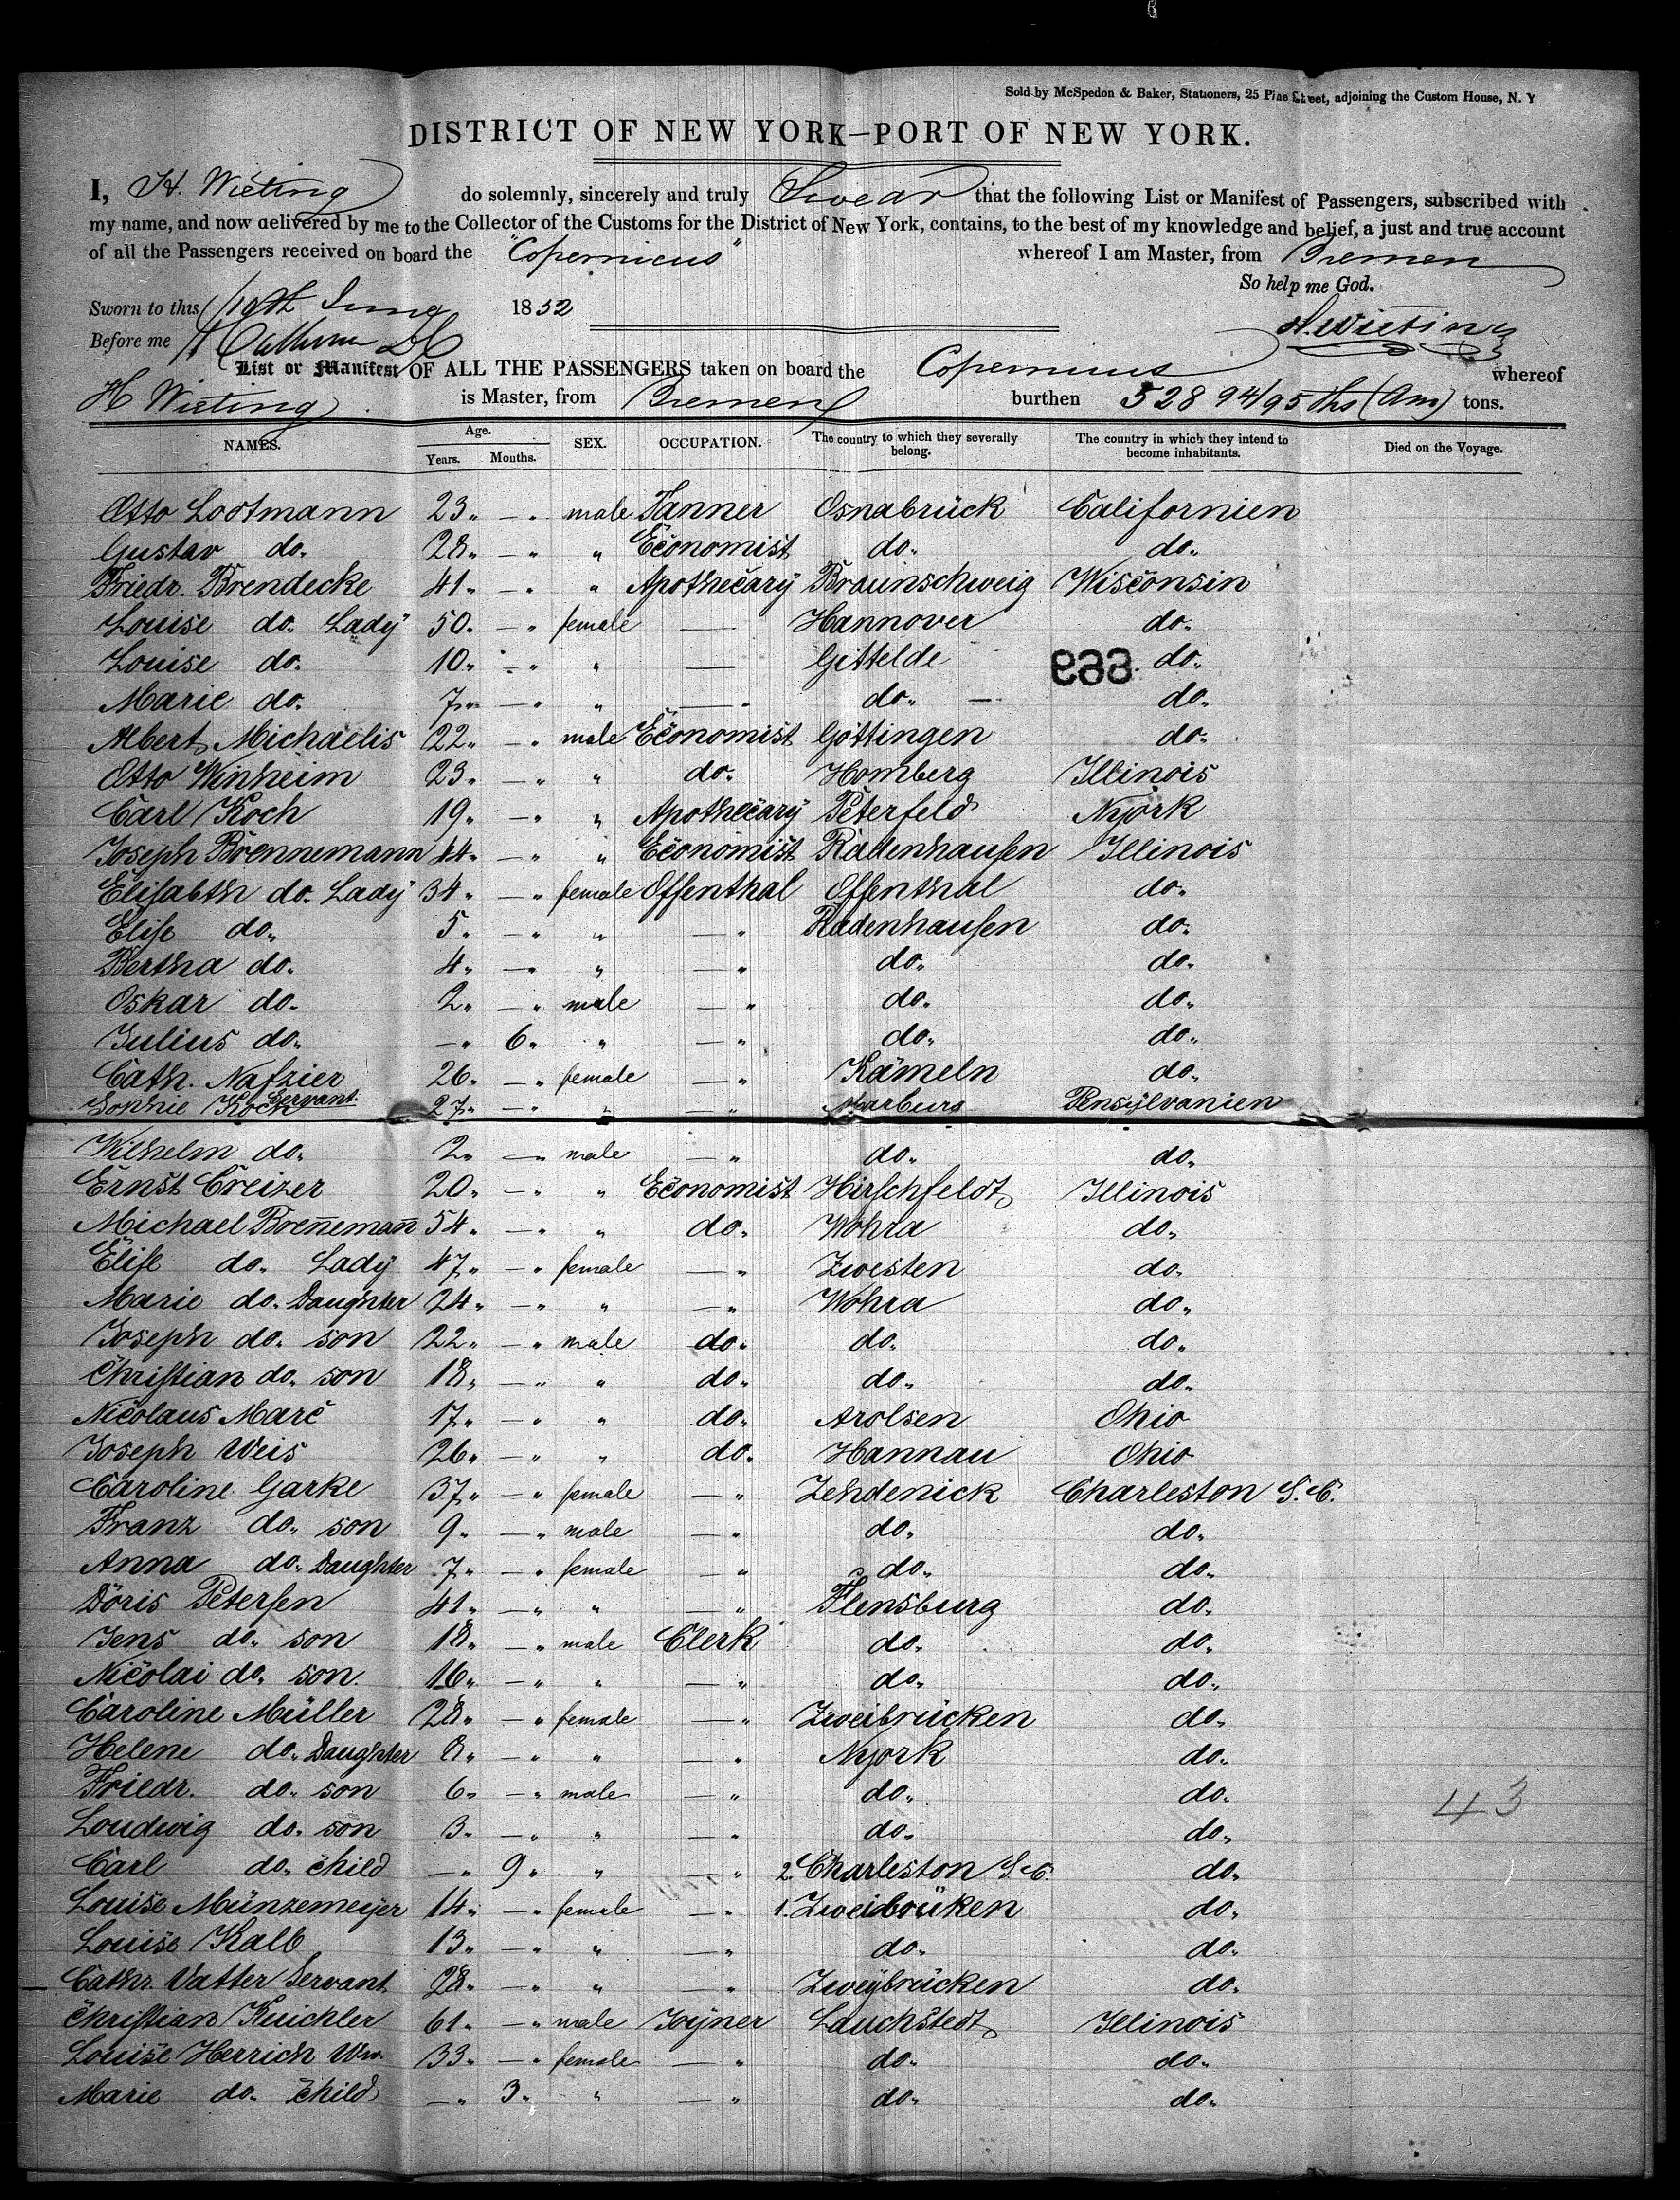 Sold by McSpedon & Baker, Stationers, 25 Pine Street, adjoining the Custom House, N. Y
DISTRICT OF NEW YORK—PORT OF NEW YORK.
I, H. Wieting do solemnly, sincerely and truly Swear that the following List or Manifest of Passengers, subscribed with
my name, and now delivered by me to the Collector of the Customs for the District of New York, contains, to the best of my knowledge and belief, a just and true account
of all the Passengers received on board the "Copernicus" whereof I am Master, from Bremen
So help me God.
Sworn to this 1852
H. Wieting
Before me
List or Manifest OF ALL THE PASSENGERS taken on board the Copernicus whereof
H Wieting is Master, from Bremen burthen 528 94/95 ths (Am) tons.
NAMES. Age. Years. Months. SEX. OCCUPATION. The country to which they severally belong. The country in which they intend to become inhabitants. Died on the Voyage.
Otto Lodtmann 23„ —„ male Tanner Osnabrück Californien
Gustav do. 28„ —„ „ Economist do. do.
Friedr. Brendecke 41„ —„ „ Apothecary Braunschweig Wisconsin
Louise do. Lady 50. —„ female — Hannover do.
Louise do. 10„ —„ „ — Gittelde do.
999
Marie do. 7„ —„ „ —„ do. — do.
Albert Michaelis 22„ —„ male Economist Göttingen do.
Otto Winheim 23„ —„ „ do. Homberg Illinois
Carl Koch 19„ —„ „ Apothecary Peterfeld Nyork
Joseph Brennemann 44„ —„ „ Economist Radenhausen Illinois
Elisabth do. Lady 34„ —„ female Offenthal Offenthal do.
Elise do. 5„ —„ „ —„ Radenhausen do.
Bertha do. 4„ —„ „ —„ do. do.
Oskar do. 2„ —„ male —„ do. do.
Julius do. —„ 6„ „ —„ do. do.
Cath. Nafzier Servant. 26„ —„ female —„ Kämeln do.
Sophie Koch 27„ —„ „ —„ Marburg Pensylvanien
Wilhelm do. 2„ —„ male —„ do. do.
Ernst Creizer 20„ —„ „ Economist Hirschfeldt Illinois
Michael Brennemann 54„ —„ „ do. Wohra do.
Elise do. Lady 47„ —„ female —„ Zwesten do.
Marie do. Daughter 24„ —„ „ —„ Wohra do.
Joseph do. son 22„ —„ male do. do. do.
Christian do. son 18„ —„ „ do. do. do.
Nicolaus Marc 17„ —„ „ do. Arolsen Ohio
Joseph Weis 26„ —„ „ do. Hannau Ohio
Caroline Garke 37„ —„ female —„ Zehdenick Charleston S.C.
Franz do. son 9„ —„ male —„ do. do.
Anna do. Daughter 7„ —„ female —„ do. do.
Doris Petersen 41„ —„ „ —„ Flensburg do.
Jens do. son 18„ —„ male Clerk do. do.
Nicolai do. son. 16„ —„ „ —„ do. do.
Caroline Müller 28„ —„ female —„ Zweibrücken do.
Helene do. Daughter 8„ —„ „ —„ Nyork do.
Friedr. do. son 6„ —„ male —„ do. do.
43
Loudwig do. son 3„ —„ „ —„ do. do.
Carl do. child —„ 9„ „ —„ 2. Charleston S.C. do.
Louise Münzemeyer 14„ —„ female —„ 1. Zweibrüken do.
Louise Kalb 13„ —„ „ —„ do. do.
Cathr. Vatter Servant 28„ —„ „ —„ Zweybrücken do.
Christian Kuichler 61„ —„ male Joyner Lauchstedt Illinois
Louise Herrich Ww. 33„ —„ female —„ do. do.
Marie do. child —„ 3„ „ —„ do. do.